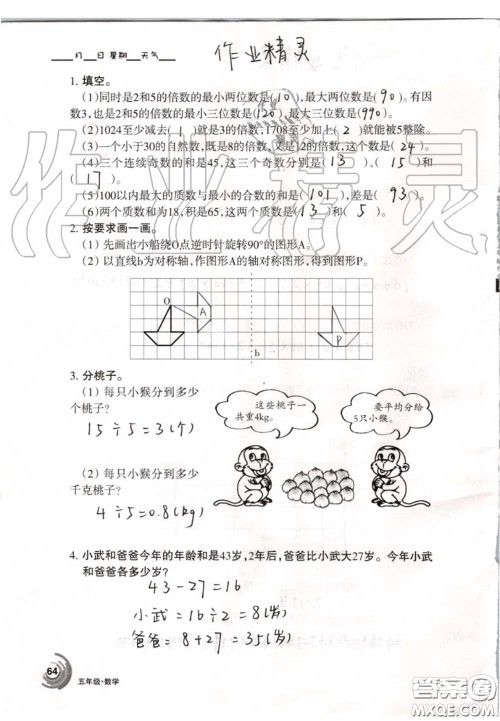 ___月___日 星期___ 天气___
作业精灵
1. 填空。
(1)同时是2和5的倍数的最小两位数是( 10 ),最大两位数是( 90 )。有因
数3,也是2和5的倍数的最小三位数是(120),最大三位数是(990)。
(2)1024至少减去( 1 )就是3的倍数,1708至少加上( 2 )就能被5整除。
(3)一个小于30的自然数,既是8的倍数,又是12的倍数,这个数是( 24 )。
(4)三个连续奇数的和是45,这三个奇数分别是( 13 )、( 15 )和
( 17 )。
(5)100以内最大的质数与最小的合数的和是( 101 ),差是( 93 )。
(6)两个质数和为18,积是65,这两个质数是( 13 )和( 5 )。
2. 按要求画一画。
(1)先画出小船绕O点逆时针旋转90°的图形A。
(2)以直线b为对称轴,作图形A的轴对称图形,得到图形P。
O
A
P
b
3. 分桃子。
(1)每只小猴分到多少
个桃子?
15÷5=3(个)
这些桃子一
共重4kg。
要平均分给
5只小猴。
(2)每只小猴分到多少
千克桃子?
4÷5=0.8(kg)
4. 小武和爸爸今年的年龄和是43岁,2年后,爸爸比小武大27岁。今年小武
和爸爸各多少岁?
43-27=16
小武=16÷2=8(岁)
爸爸=8+27=35(岁)
64
五年级·数学
作业精灵
答案圈
MXQE.COM